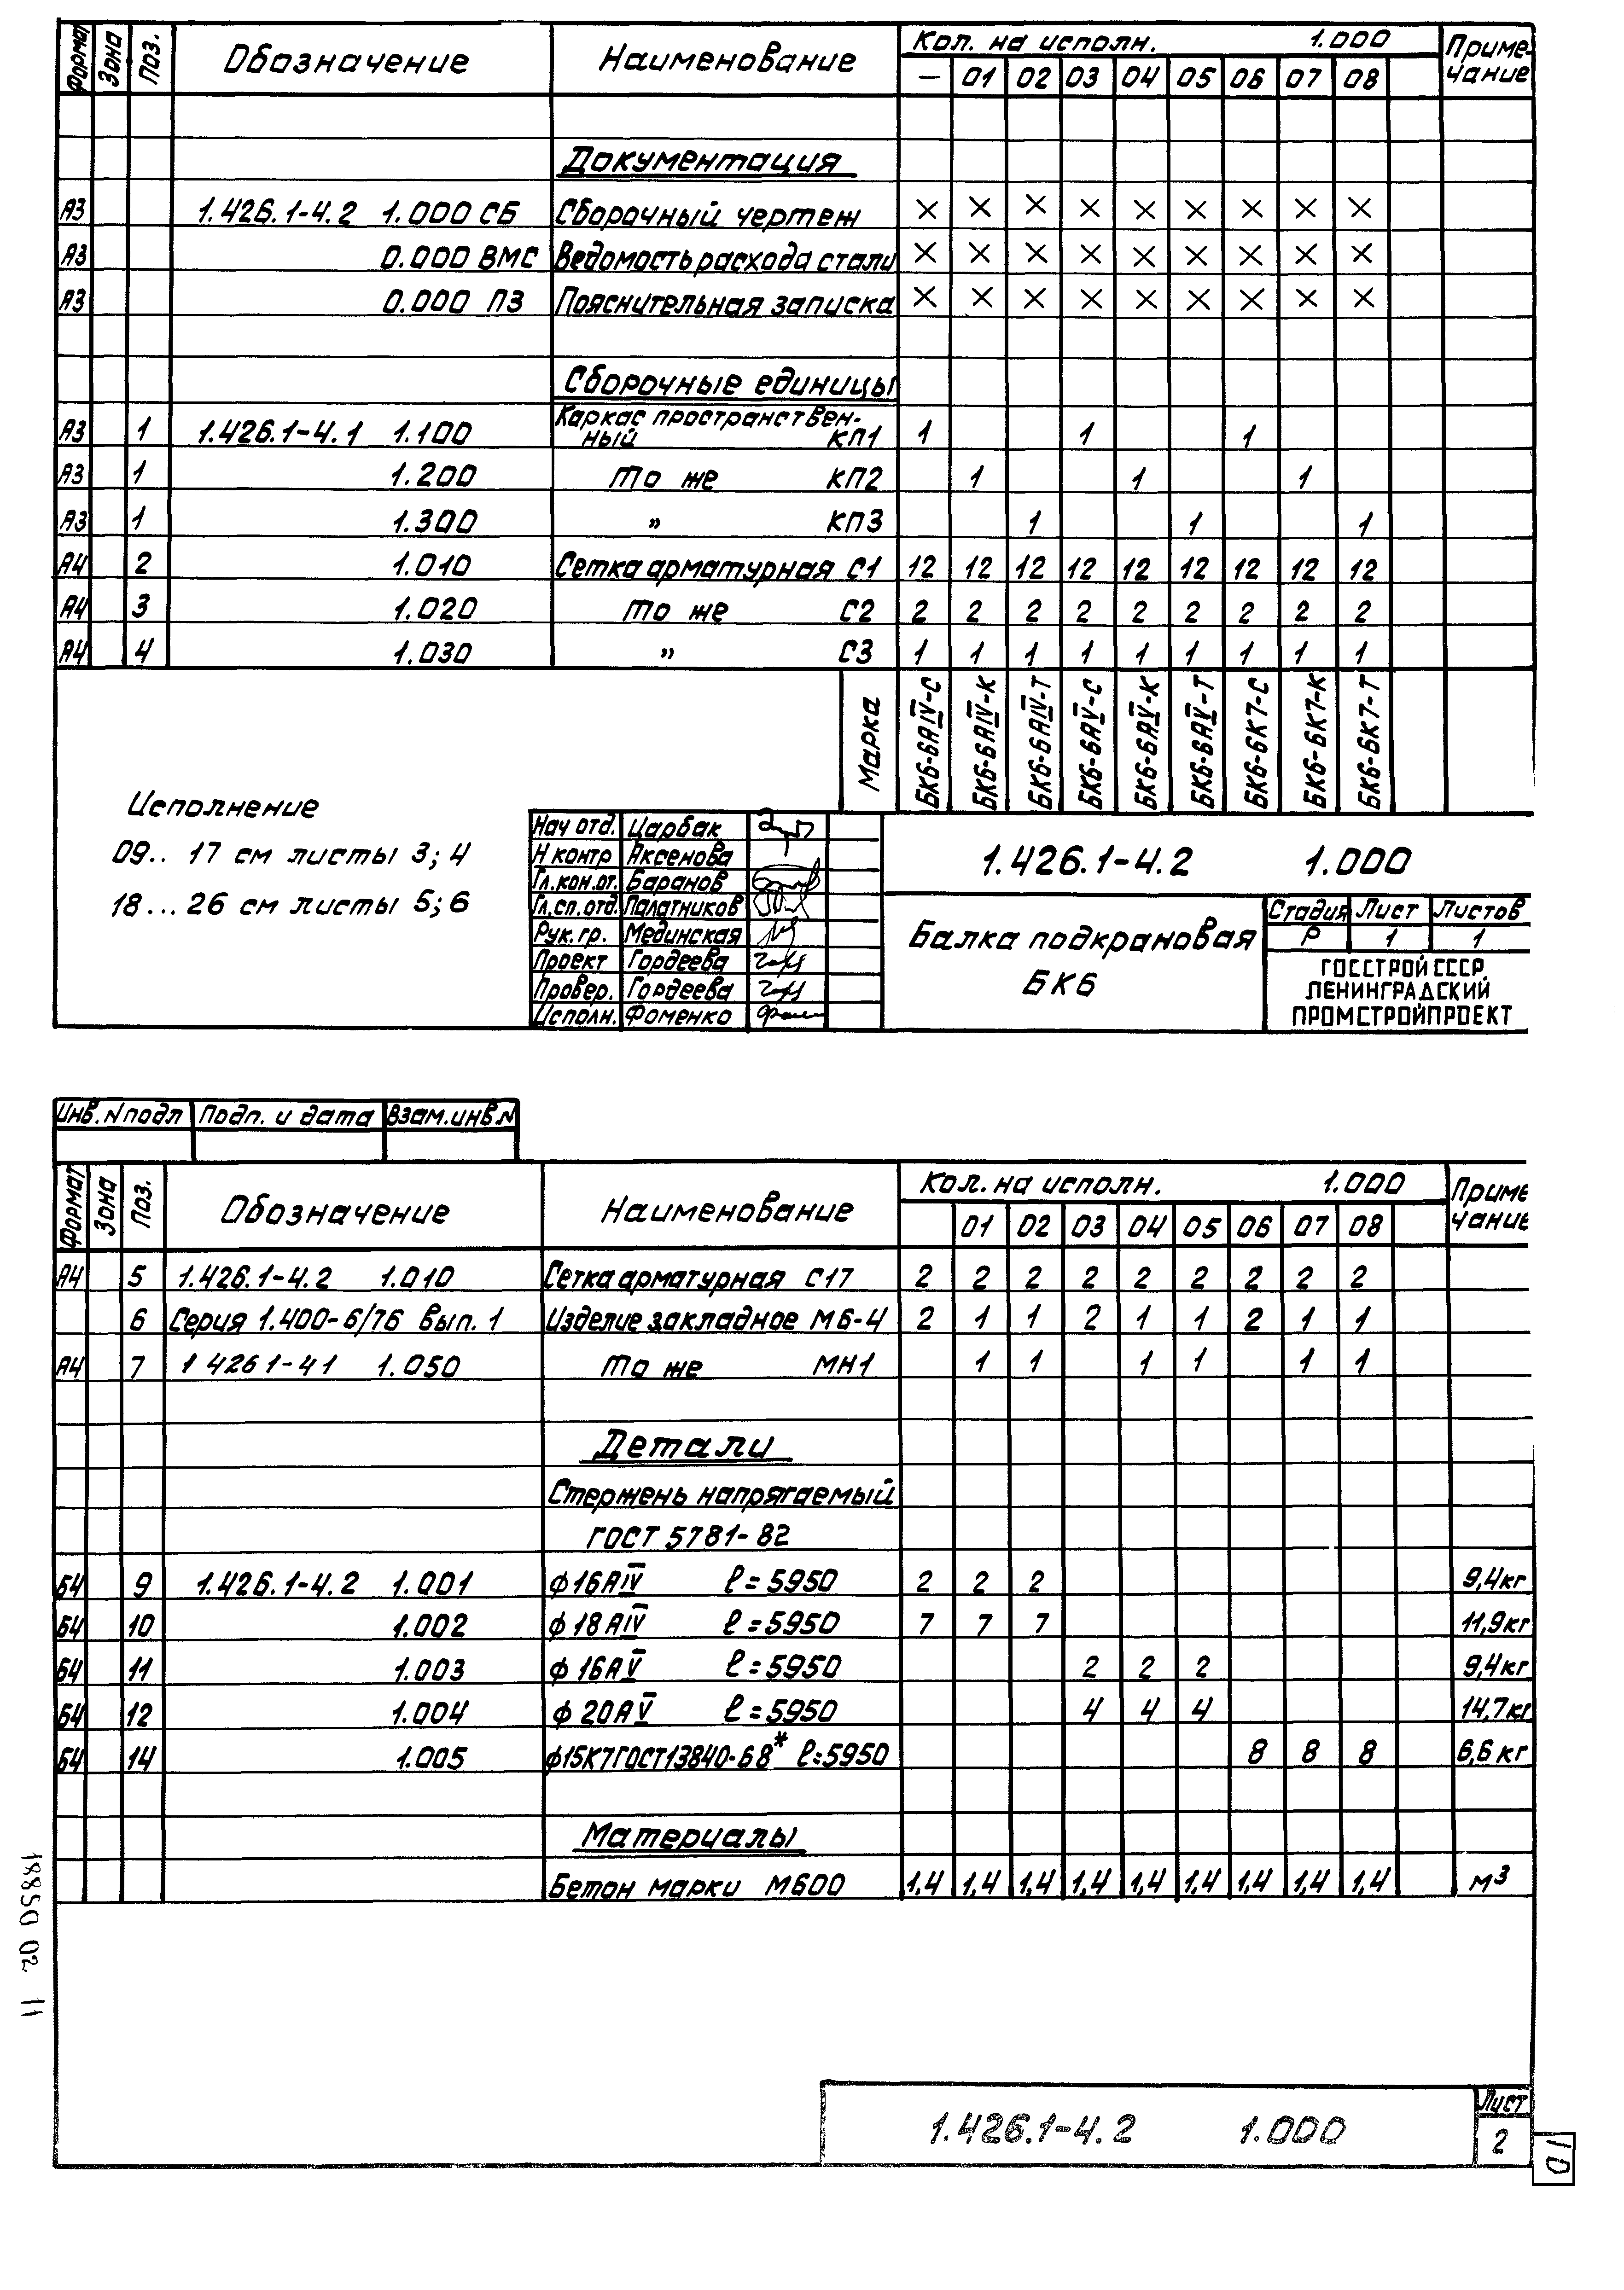 Формат Зона Поз. Обозначение Наименование Кол. на исполн. 1.000 Приме-чание
— 01 02 03 04 05 06 07 08
Документация
А3 1.426.1-4.2 1.000 СБ Сборочный чертеж × × × × × × × × ×
А3 0.000 ВМС Ведомость расхода стали × × × × × × × × ×
А3 0.000 ПЗ Пояснительная записка × × × × × × × × ×
Сборочные единицы
Каркас пространствен-
А3 1 1.426.1-4.1 1.100 ный КП1 1 1 1
А3 1 1.200 то же КП2 1 1 1
А3 1 1.300 " КП3 1 1 1
А4 2 1.010 Сетка арматурная С1 12 12 12 12 12 12 12 12 12
А4 3 1.020 то же С2 2 2 2 2 2 2 2 2 2
А4 4 1.030 " С3 1 1 1 1 1 1 1 1 1
Марка БК6-6АIV-С БК6-6АIV-К БК6-6АIV-Т БК6-6АV-С БК6-6АV-К БК6-6АV-Т БК6-6К7-С БК6-6К7-К БК6-6К7-Т
Исполнение
09.. 17 см листы 3; 4
18... 26 см листы 5; 6
Нач отд. Царбак
Н контр Аксенова
Гл.кон.от. Баранов
Гл.сп.отд. Палатников
Рук. гр. Мединская
Проект Гордеева
Провер. Гордеева
Исполн. Фоменко
1.426.1-4.2 1.000
Балка подкрановая
БК6
Стадия Лист Листов
Р 1 1
ГОССТРОЙ СССР
ЛЕНИНГРАДСКИЙ
ПРОМСТРОЙПРОЕКТ
Инв. N подл Подп. и дата Взам.инв.N
Формат Зона Поз. Обозначение Наименование Кол. на исполн. 1.000 Приме чание
01 02 03 04 05 06 07 08
А4 5 1.426.1-4.2 1.010 Сетка арматурная С17 2 2 2 2 2 2 2 2 2
6 Серия 1.400-6/76 Вып. 1 Изделие закладное М6-4 2 1 1 2 1 1 2 1 1
А4 7 1 426 1-4 1 1.050 то же МН1 1 1 1 1 1 1
Детали
Стержень напрягаемый
ГОСТ 5781-82
Б4 9 1.426.1-4.2 1.001 ф16АIV ℓ=5950 2 2 2 9,4кг
Б4 10 1.002 ф18АIV ℓ=5950 7 7 7 11,9кг
Б4 11 1.003 ф16АV ℓ=5950 2 2 2 9,4кг
Б4 12 1.004 ф20АV ℓ=5950 4 4 4 14,7кг
Б4 14 1.005 ф15К7ГОСТ13840-68* ℓ=5950 8 8 8 6,6 кг
Материалы
Бетон марки М600 1,4 1,4 1,4 1,4 1,4 1,4 1,4 1,4 1,4 м³
18850 02 11
1.426.1-4.2 1.000
Лист
2
10